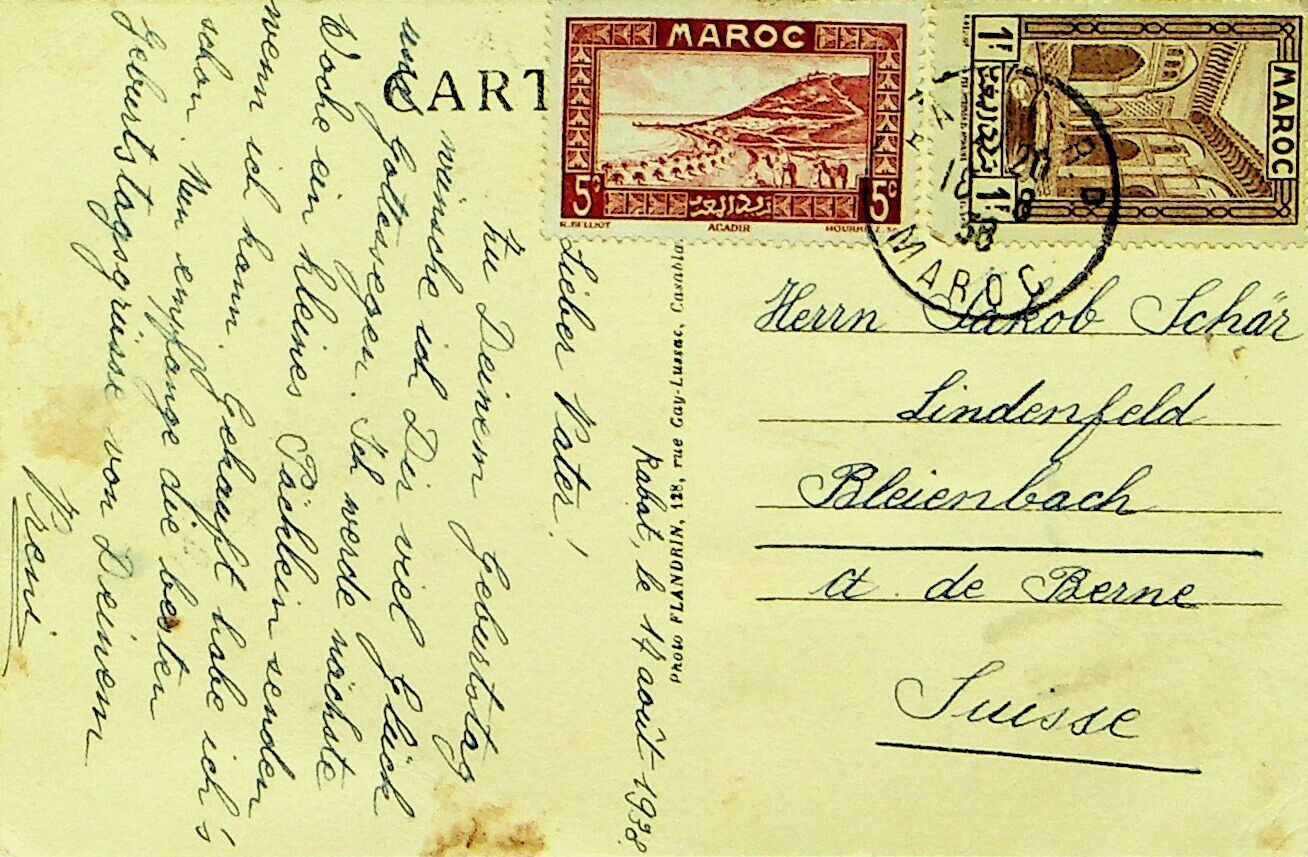 CART
MAROC
5c 5c
R. BELLIOT AGADIR
1F
1F
MAROC
20
18 8
38
MAROC
Photo FLANDRIN, 128, rue Gay-Lussac, Casabla
Rabat, le 17 août 1938
Lieber Vater!
Zu Deinem Geburtstag
wünsche ich Dir viel Glück
und Gottessegen. Ich werde nächste
Woche ein kleines Päcklein senden
wenn ich kann. Gekauft habe ich's
schon. Nun empfange die besten
Geburtstagsgrüsse von Deinem
Vreni
Herrn Jakob Schär
Lindenfeld
Bleienbach
Ct. de Berne
Suisse